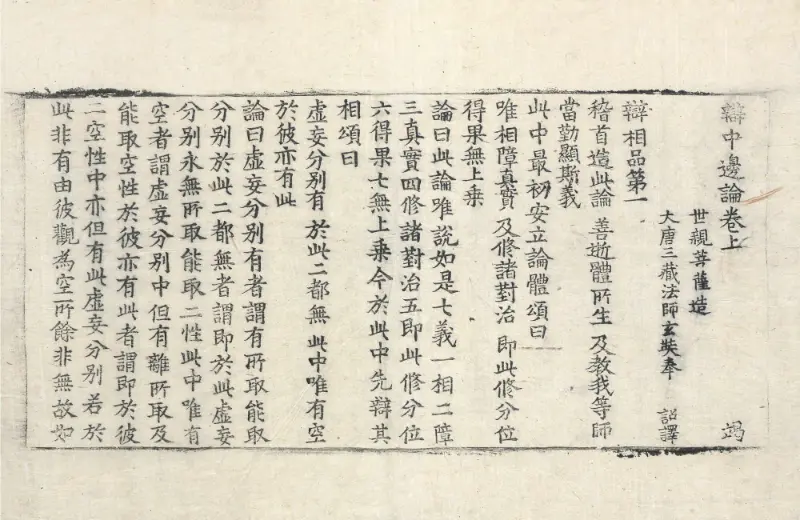 辯中邊論卷上 竭
世親菩薩造
大唐三藏法師玄奘奉 詔譯
辯相品第一
稽首造此論 善逝體所生 及教我等師
當勤顯斯義
此中最初安立論體頌曰
唯相障真實 及修諸對治 即此修分位
得果無上乘
論曰此論唯說如是七義一相二障
三真實四修諸對治五即此修分位
六得果七無上乘今於此中先辯其
相頌曰
虛妄分別有 於此二都無 此中唯有空
於彼亦有此
論曰虛妄分別有者謂有所取能取
分別於此二都無者謂即於此虛妄
分別永無所取能取二性此中唯有
空者謂虛妄分別中但有離所取及
能取空性於彼亦有此者謂即於彼
二空性中亦但有此虛妄分別若於
此非有由彼觀為空所餘非無故如